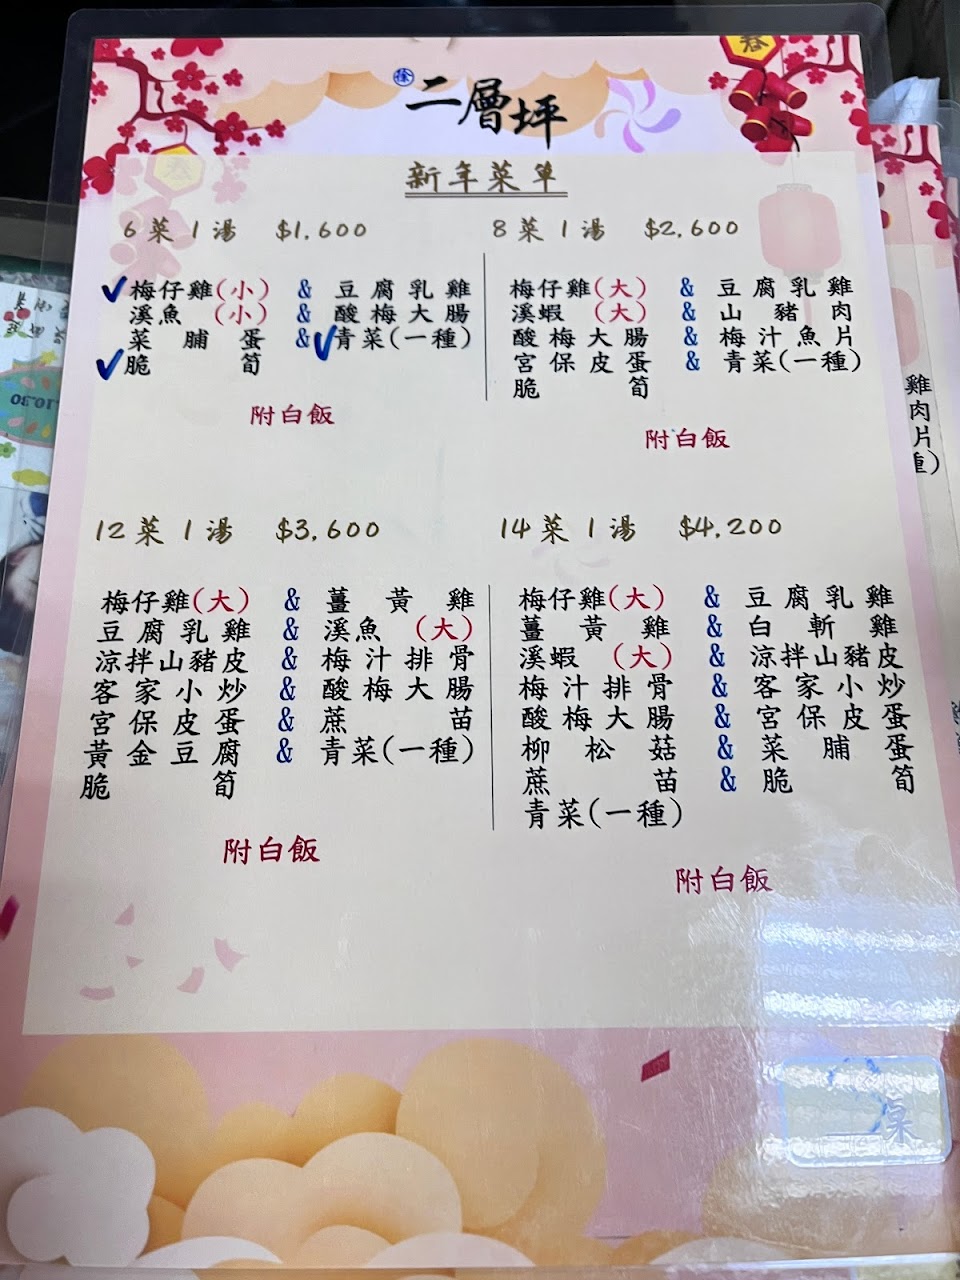 徐 二層坪
春
新年菜單
6菜1湯 $1,600
梅仔雞(小) & 豆腐乳雞
溪魚 (小) & 酸梅大腸
菜脯蛋 & 青菜(一種)
脆筍
附白飯
8菜1湯 $2,600
梅仔雞(大) & 豆腐乳雞
溪蝦 (大) & 山豬肉
酸梅大腸 & 梅汁魚片
宮保皮蛋 & 青菜(一種)
脆筍
附白飯
12菜1湯 $3,600
梅仔雞(大) & 薑黃雞
豆腐乳雞 & 溪魚 (大)
涼拌山豬皮 & 梅汁排骨
客家小炒 & 酸梅大腸
宮保皮蛋 & 蔗苗
黃金豆腐 & 青菜(一種)
脆筍
附白飯
14菜1湯 $4,200
梅仔雞(大) & 豆腐乳雞
薑黃雞 & 白斬雞
溪蝦 (大) & 涼拌山豬皮
梅汁排骨 & 客家小炒
酸梅大腸 & 宮保皮蛋
柳松菇 & 菜脯蛋
蔗苗 & 脆筍
青菜(一種)
附白飯
雞
肉
片
重)
桌